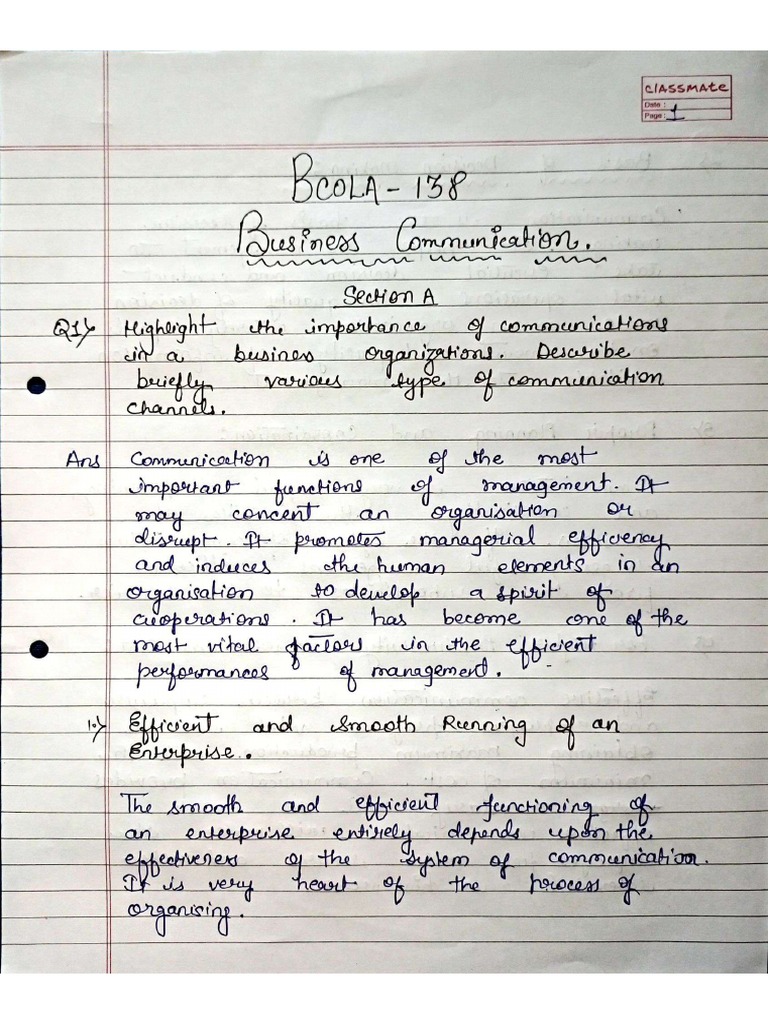 classmate
Date :
Page : 1
BCOLA - 138
Business Communication.
Section A
Q1) Highlight the importance of communications
in a business organizations. Describe
briefly various type of communication
channels.
Ans Communication is one of the most
important functions of management. It
may concent an organisation or
disrupt. It promotes managerial efficiency
and induces the human elements in an
organisation to develop a spirit of
cooperations. It has become one of the
most vital factors in the efficient
performances of management.
1.) Efficient and Smooth Running of an
Enterprise.
The smooth and efficient functioning of
an enterprise entirely depends upon the
effectiveness of the system of communication.
It is very heart of the process of
organising.